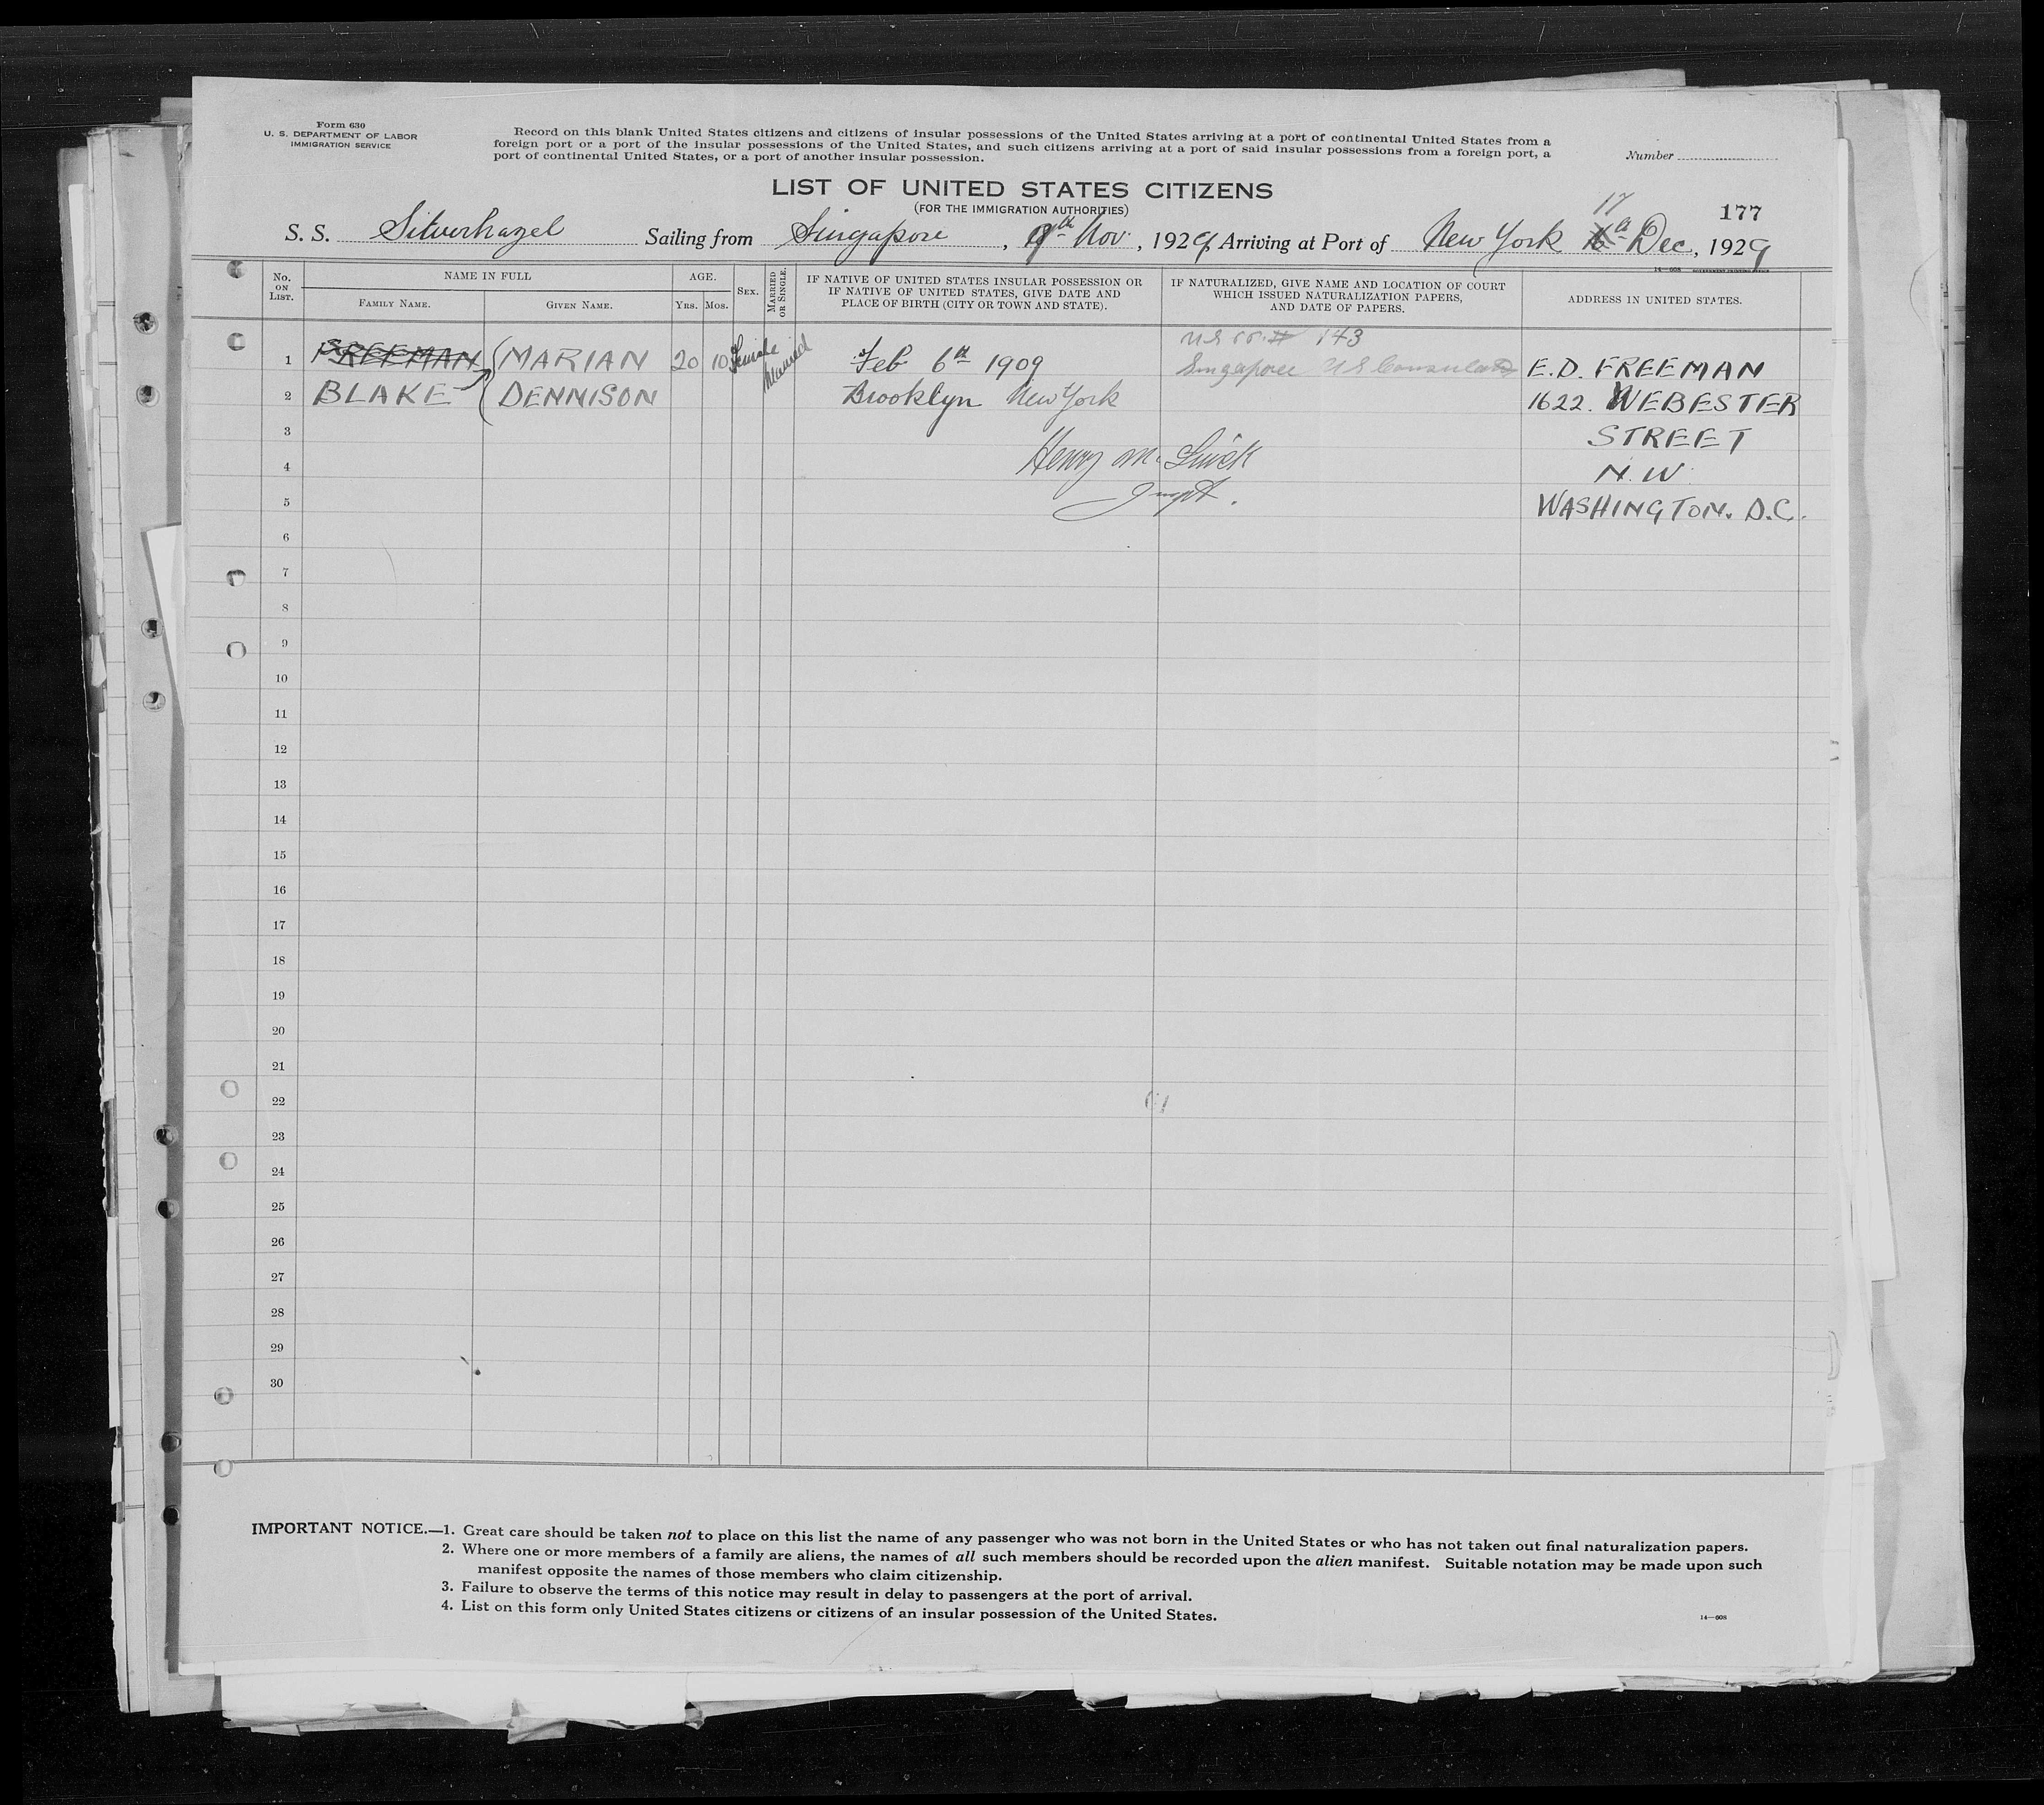 Form 630
U. S. DEPARTMENT OF LABOR
IMMIGRATION SERVICE
Record on this blank United States citizens and citizens of insular possessions of the United States arriving at a port of continental United States from a
foreign port or a port of the insular possessions of the United States, and such citizens arriving at a port of said insular possessions from a foreign port, a
port of continental United States, or a port of another insular possession.
Number
LIST OF UNITED STATES CITIZENS
(FOR THE IMMIGRATION AUTHORITIES)
17
177
S. S. Silverhazel Sailing from Singapore, 9th Nov., 1929, Arriving at Port of New York Dec, 1929
14—608 GOVERNMENT PRINTING OFFICE
No. ON LIST.
NAME IN FULL
FAMILY NAME.
GIVEN NAME.
AGE.
YRS. MOS.
SEX.
MARRIED OR SINGLE.
IF NATIVE OF UNITED STATES INSULAR POSSESSION OR
IF NATIVE OF UNITED STATES, GIVE DATE AND
PLACE OF BIRTH (CITY OR TOWN AND STATE).
IF NATURALIZED, GIVE NAME AND LOCATION OF COURT
WHICH ISSUED NATURALIZATION PAPERS,
AND DATE OF PAPERS.
ADDRESS IN UNITED STATES.
143
1 FREEMAN MARIAN 20 10 Female Married Feb 6th 1909 Singapore US Consulate E.D. FREEMAN
2 BLAKE DENNISON Brooklyn New York 1622. WEBESTER
3 STREET
4 Henry M. N.W.
5 Inspt. WASHINGTON. D.C.
6
7
8
9
10
11
12
13
14
15
16
17
18
19
20
21
22
23
24
25
26
27
28
29
30
IMPORTANT NOTICE.—1. Great care should be taken not to place on this list the name of any passenger who was not born in the United States or who has not taken out final naturalization papers.
2. Where one or more members of a family are aliens, the names of all such members should be recorded upon the alien manifest. Suitable notation may be made upon such
manifest opposite the names of those members who claim citizenship.
3. Failure to observe the terms of this notice may result in delay to passengers at the port of arrival.
4. List on this form only United States citizens or citizens of an insular possession of the United States.
14—608